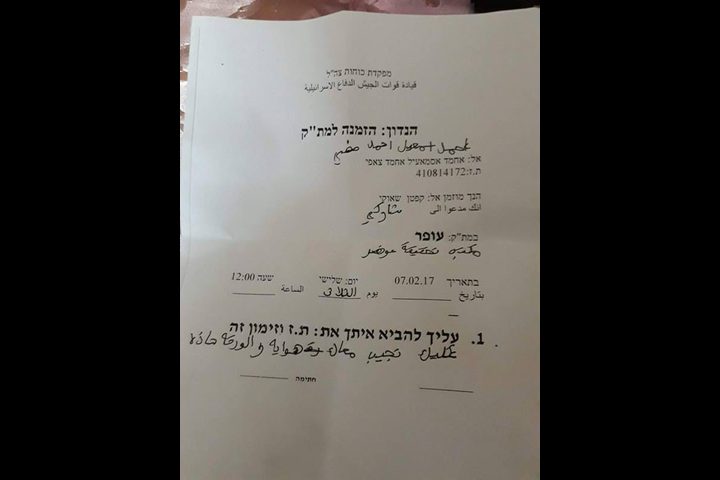 מפקדת כוחות צה"ל
قيادة قوات الجيش الدفاع الاسرائيلية
הנדון: הזמנה למת"ק
احمد اسمعيل احمد
אל: אחמד אסמאעיל אחמד צאפי
ת.ז: 410814172
הנך מוזמן אל: קפטן שאוקי
انك مدعوا الى
במת"ק: עופר
عوفر
בתאריך 07.02.17 יום: שלישי שעה 12:00
بتاريخ يوم الثلاثاء الساعة
1. עליך להביא איתך את: ת.ז וזימון זה
عليك تجيب معك هوايه والورقة هاذه
חתימה